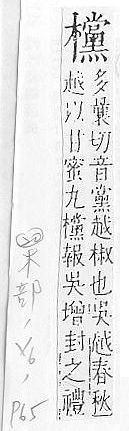 欓
多曩切音黨越椒也吳越春秋
越以甘蜜九欓報吳增封之禮
部, Y6,
P65